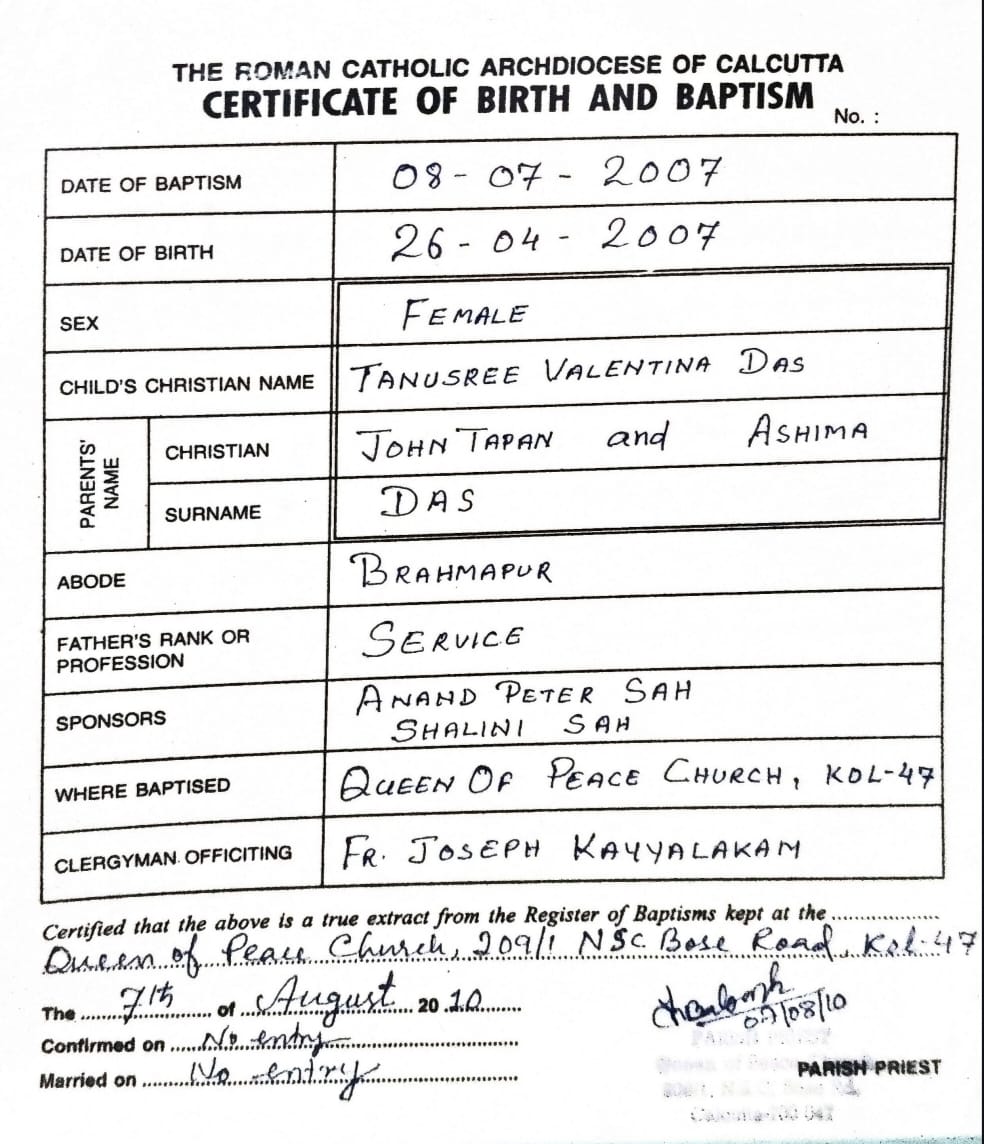 THE ROMAN CATHOLIC ARCHDIOCESE OF CALCUTTA
CERTIFICATE OF BIRTH AND BAPTISM
No. :
DATE OF BAPTISM 08-07-2007
DATE OF BIRTH 26-04-2007
SEX FEMALE
CHILD'S CHRISTIAN NAME TANUSREE VALENTINA DAS
PARENTS' NAME
CHRISTIAN JOHN TAPAN and ASHIMA
SURNAME DAS
ABODE BRAHMAPUR
FATHER'S RANK OR
PROFESSION SERVICE
SPONSORS ANAND PETER SAH
SHALINI SAH
WHERE BAPTISED QUEEN OF PEACE CHURCH, KOL-47
CLERGYMAN OFFICITING FR. JOSEPH KAYYALAKAM
Certified that the above is a true extract from the Register of Baptisms kept at the ...................
Queen of Peace Church, 209/1 NSC Bose Road, Kol-47
The 7th of August 2010
Confirmed on No entry
Married on No entry
07/08/10
PARISH PRIEST
Queen of Peace Church
209/1, N.S.C. Bose Rd,
Calcutta-700 047
PARISH PRIEST